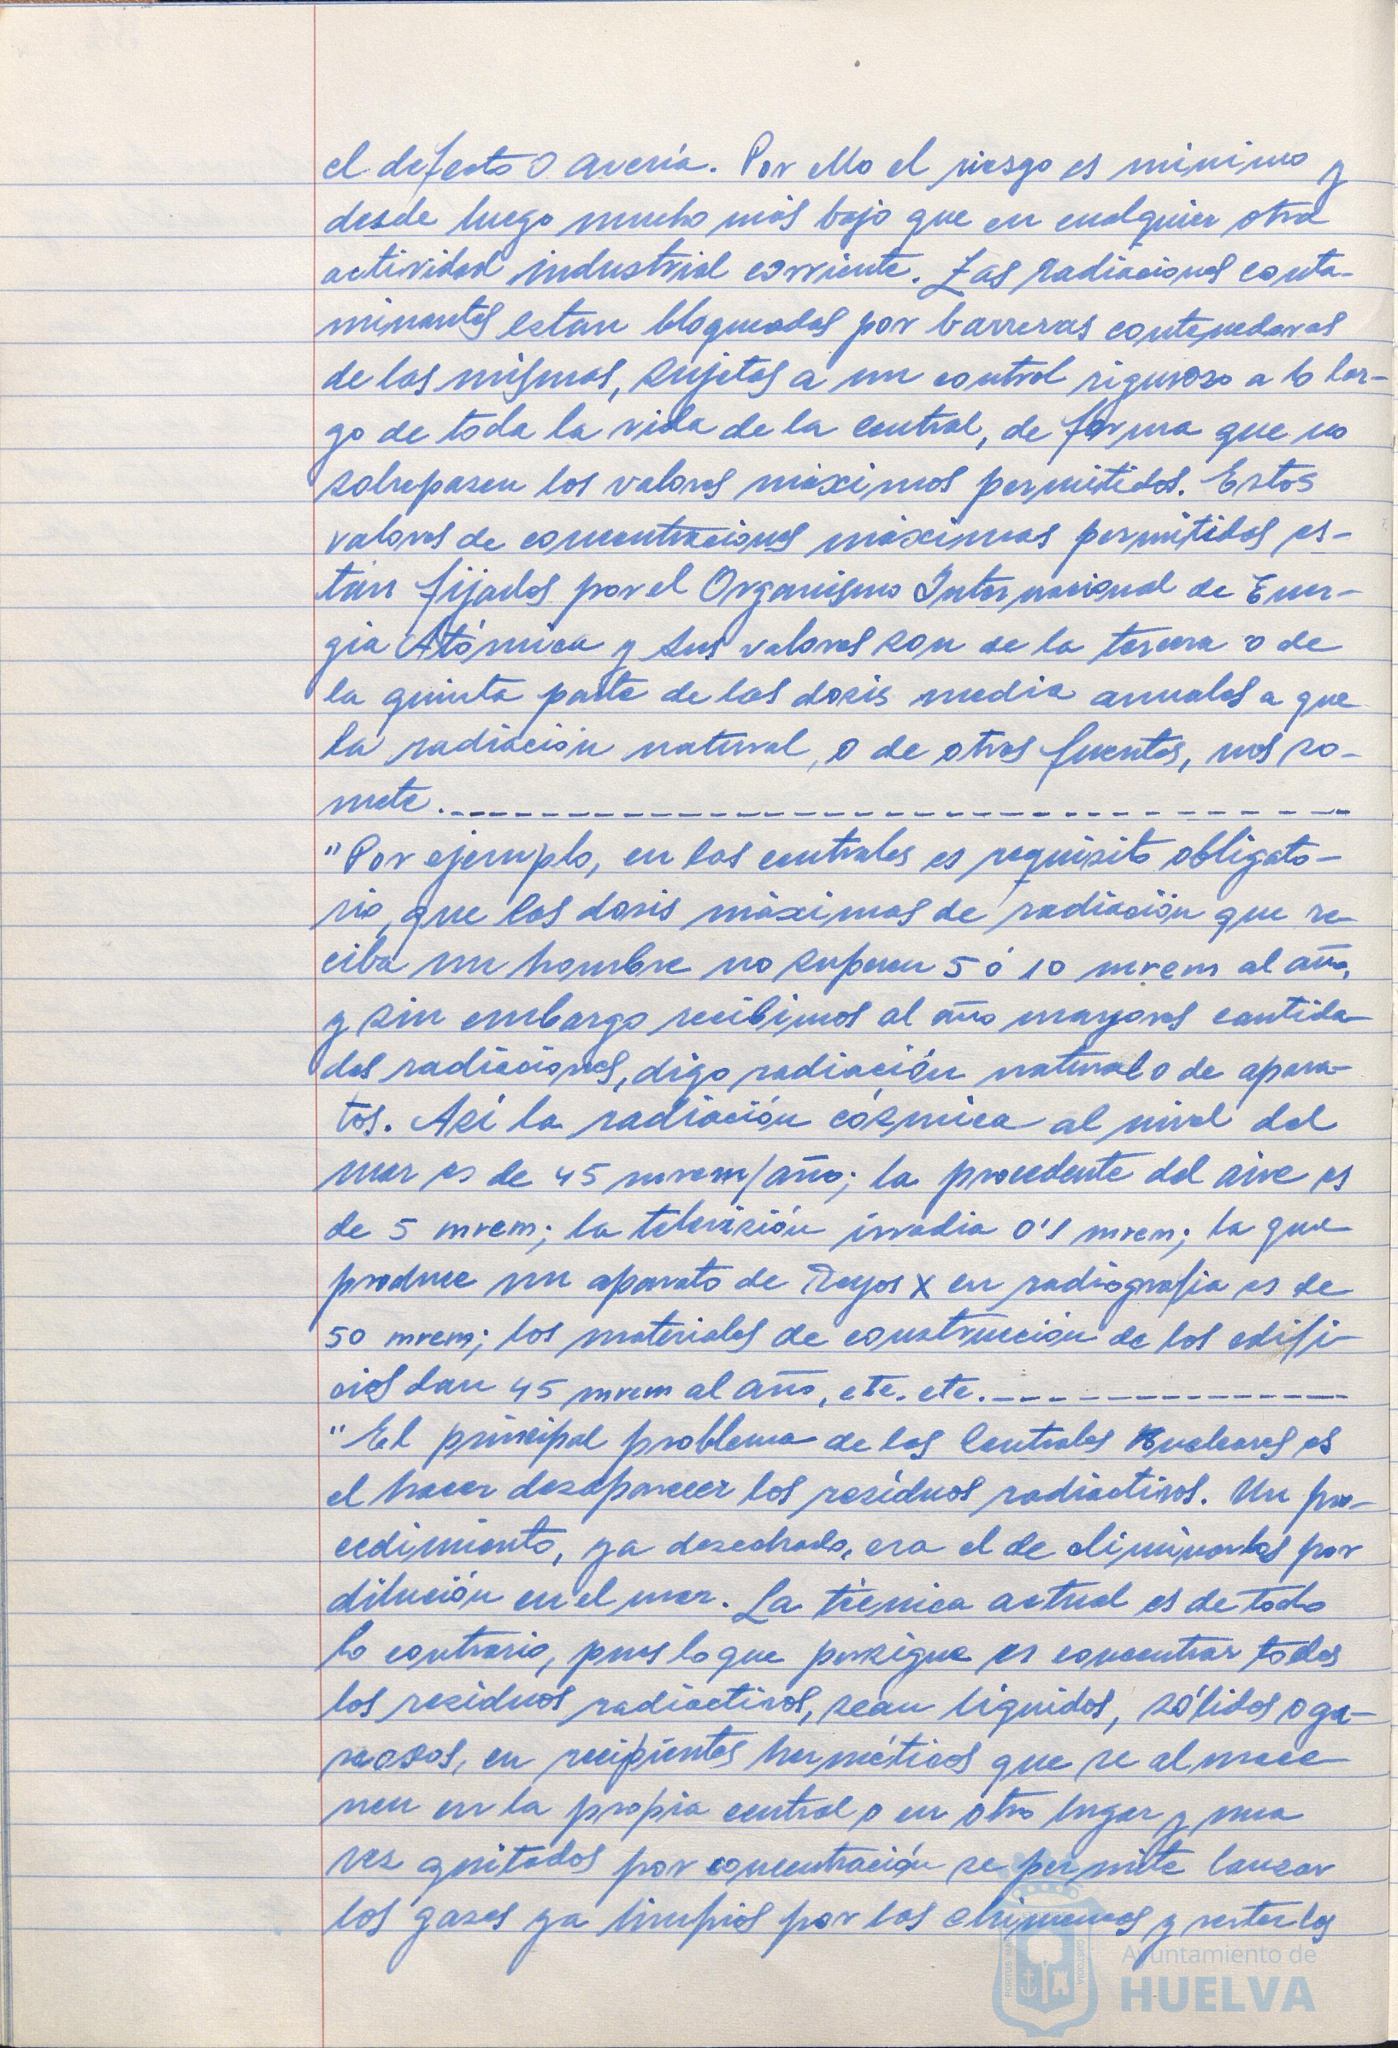 el defecto o avería. Por ello el riesgo es mínimo y
desde luego mucho más bajo que en cualquier otra
actividad industrial corriente. Las radiaciones conta-
minantes estan bloqueadas por barreras contenedoras
de las mismas, sujetas a un control riguroso a lo lar-
go de toda la vida de la Central, de forma que no
sobrepasen los valores máximos permitidos. Estos
valores de concentraciones máximas permitidos es-
tán fijados por el Organismo Internacional de Ener-
gia Atómica y sus valores son de la tercera o de
la quinta parte de las dosis media anuales a que
la radiación natural, o de otras fuentes, nos so-
mete.
"Por ejemplo, en las centrales es requisito obligato-
rio, que las dosis máximas de radiación que re-
ciba un hombre no superen 5 ó 10 mrem al año,
y sin embargo recibimos al año mayores cantida-
des radiaciones, digo radiación natural o de apara-
tos. Así la radiación cósmica al nivel del
mar es de 45 mrem/año; la procedente del aire es
de 5 mrem; la televisión irradia 0'1 mrem; la que
produce un aparato de Rayos X en radiografia es de
50 mrem; los materiales de construccion de los edifi-
cios dan 45 mrem al año, etc. etc.
"El principal problema de las Centrales Nucleares es
el hacer desaparecer los residuos radiactivos. Un pro-
cedimiento, ya desechado, era el de eliminarlos por
dilución en el mar. La técnica actual es de todo
lo contrario, pues lo que persigue es concentrar todos
los residuos radiactivos, sean líquidos, sólidos o ga-
seosos, en recipientes herméticos que se almace
nen en la propia central o en otro lugar y una
vez quitados por concentración se permite lanzar
los gases ya limpios por las chimeneas y verterlos
Ayuntamiento de
HUELVA